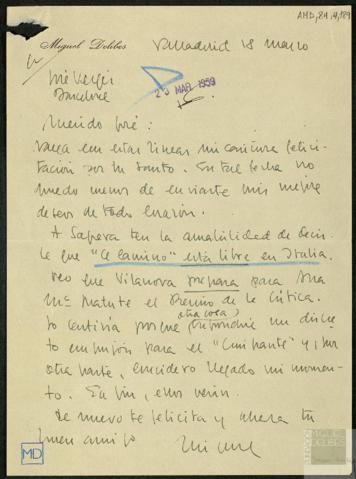 AMD, 84, 4, 189
Miguel Delibes
Valladolid 18 marzo
José Vergés
Barcelona
20 MAR. 1959
Querido José:
Vaya en estas líneas mi sincera felici-
tación por tu santo. En tal fecha no
puedo menos de enviarte mis mejores
deseos de todo corazón.
A Sapera ten la amabilidad de decir-
le que "El camino" está libre en Italia.
Veo que Vilanova prepara para Ana
Mª Matute el Premio de la Crítica.
otra cosa)
Lo sentiría porque (supondría un discre-
to empujón para el "Caminante" y, por
otra parte, considero llegado mi momen-
to. En fin, ellos verán.
De nuevo te felicita y abraza tu
buen amigo
Miguel
MD